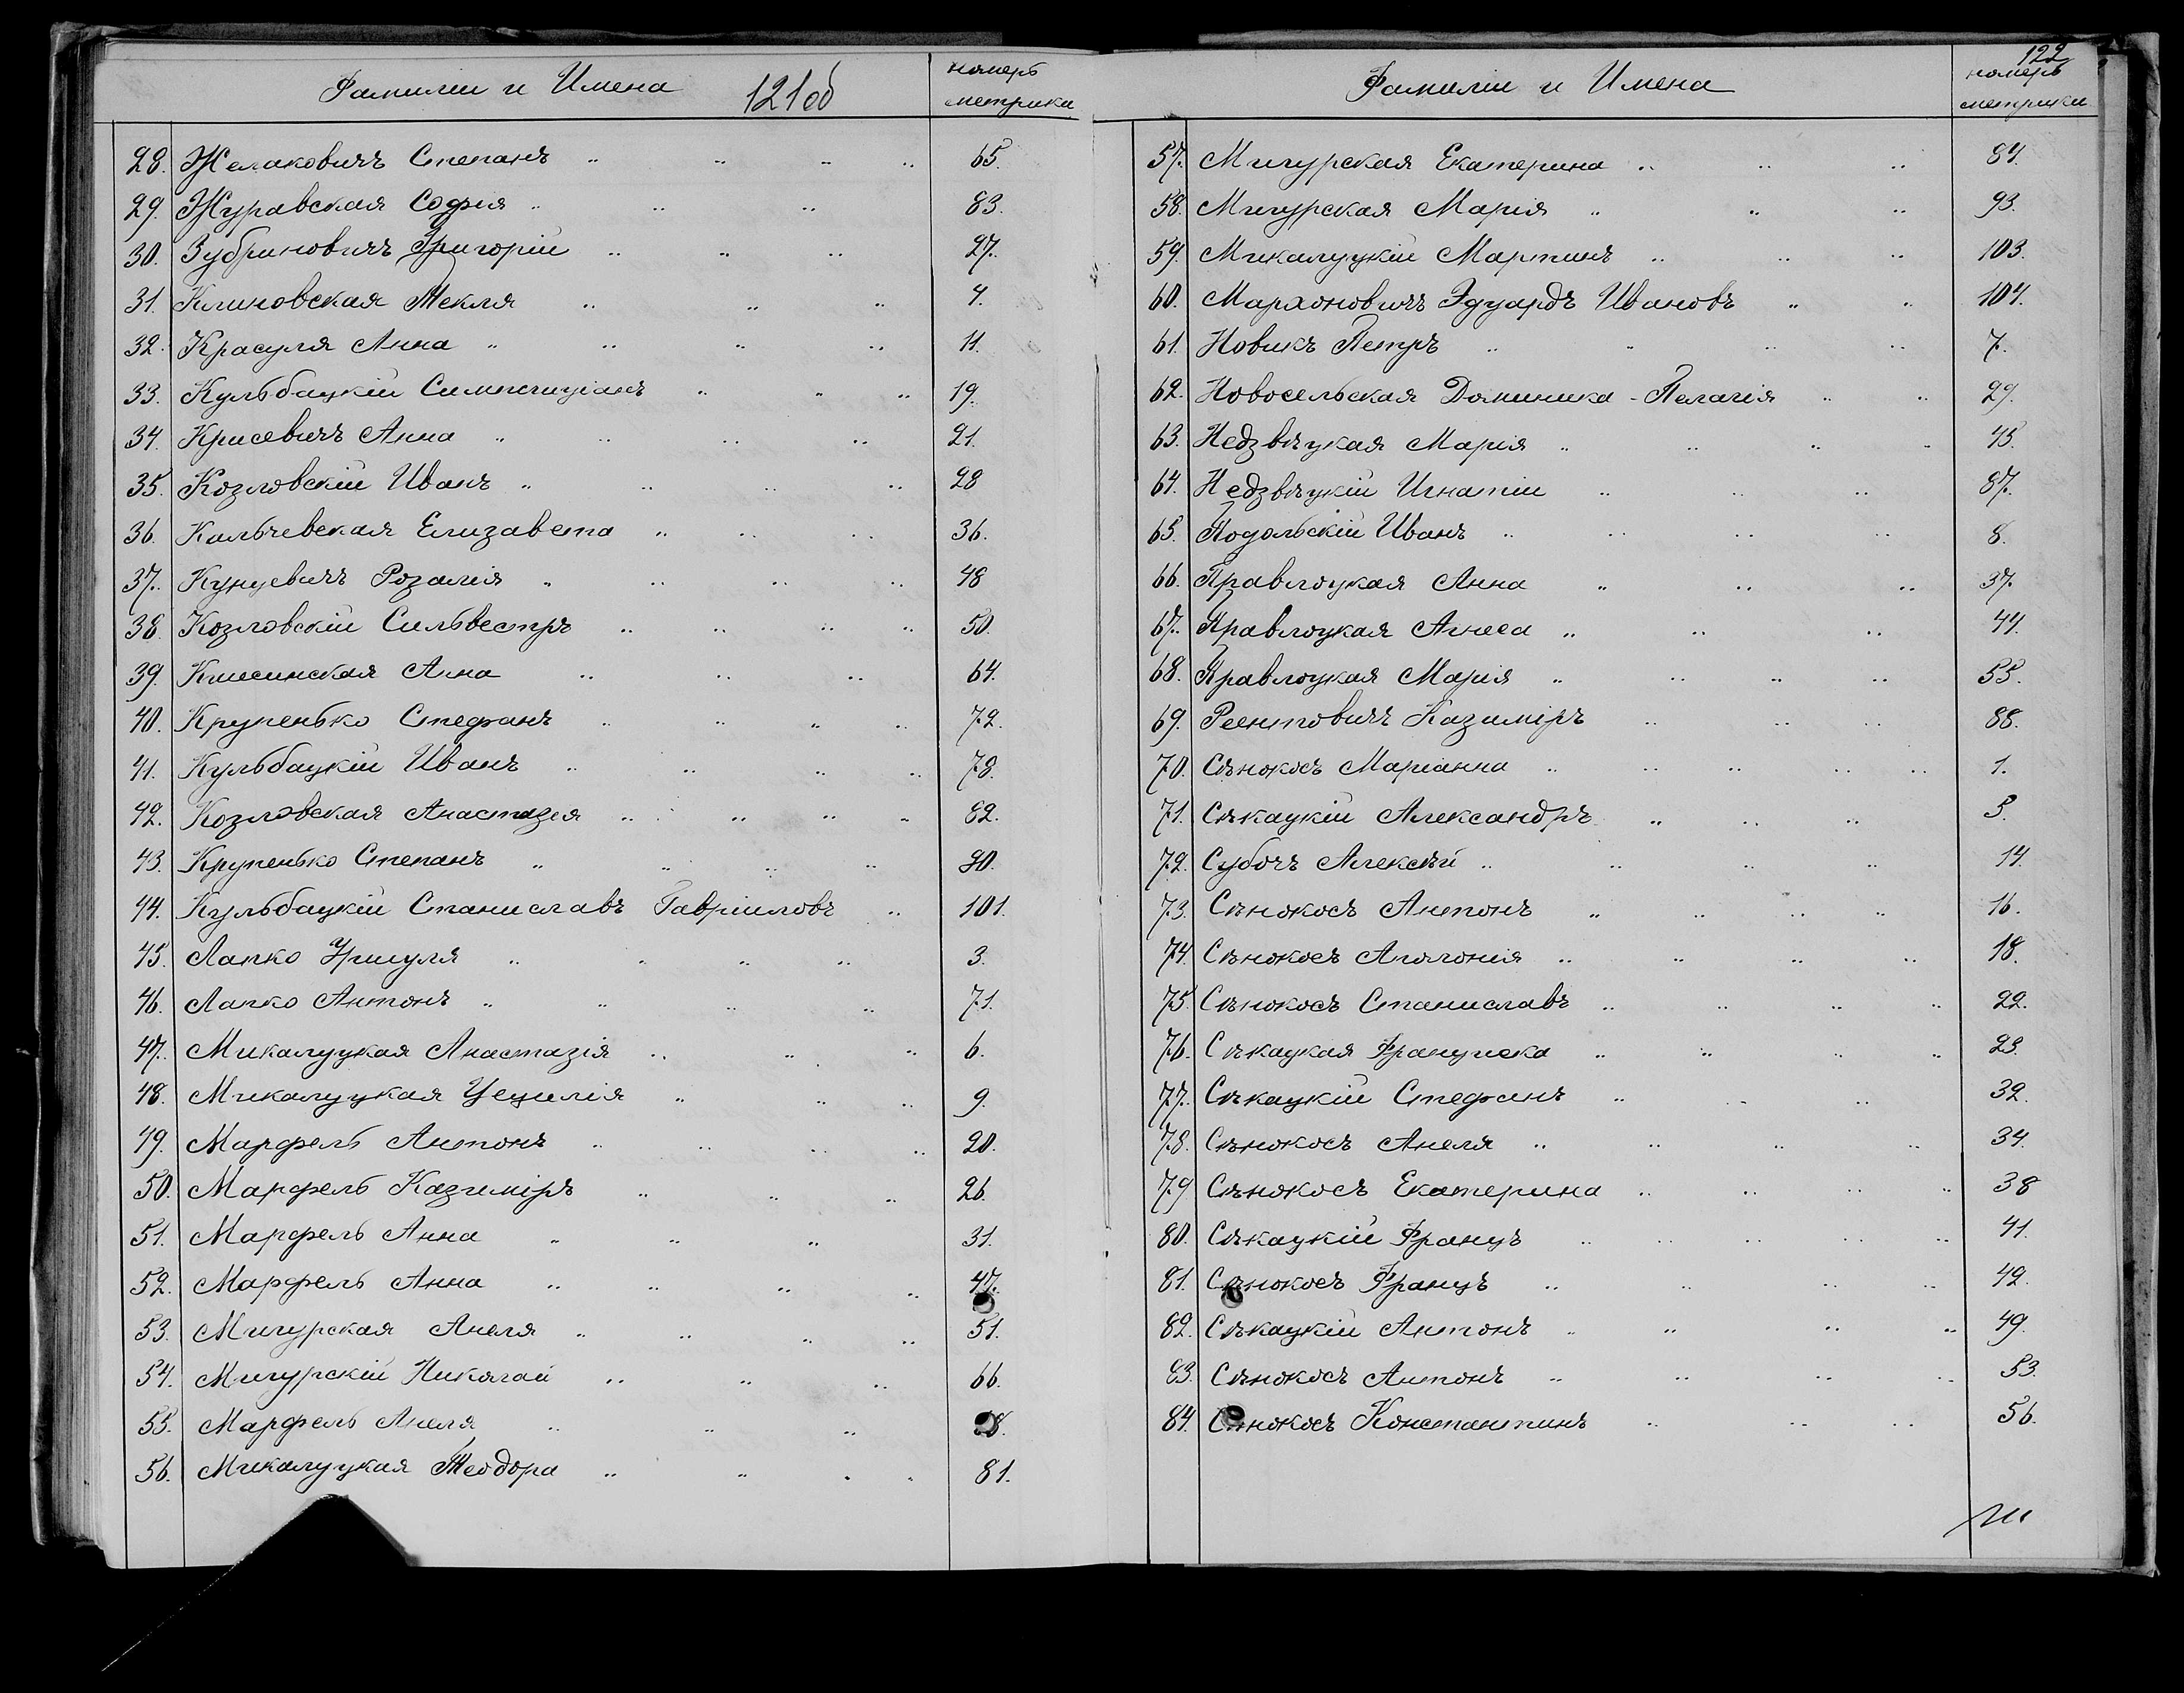 Фамиліи и Имена 121об номеръ метрики
28. Желаковичъ Степанъ 65.
29. Журавская Софія 83.
30. Зубриновичъ Григорій 27.
31. Климовская Текля 4.
32. Красуля Анна 11.
33. Кульбацкій 19.
34. Крисевичъ Анна 21.
35. Козловскій Иванъ 28
36. Кальчевская Елизавета 36.
37. Кунцевичъ Розалія 48
38. Козловскій Сильвестръ 50.
39. Анна 64.
40. Крупенько Стефанъ 72.
41. Кульбацкій Иванъ 78.
42. Козловская Анастазія 82.
43. Крупенько Степанъ 90.
44. Кульбацкій Станиславъ Гавріиловъ 101.
45. Лапко Уршуля 3.
46. Лапко Антонъ 71.
47. Микалуцкая Анастазія 6.
48. Микалуцкая Цецилія 9.
49. Марфель Антонъ 20.
50. Марфель Казиміръ 26.
51. Марфель Анна 31.
52. Марфель Анна 47.
53. Мигурская Анеля 51.
54. Мигурскій Николай 66.
55. Марфель Анеля
56. Микалуцкая Теодора 81.
122
Фамиліи и Имена номеръ метрики
57. Мигурская Екатерина 84.
58. Мигурская Марія 93.
59. Микалуцкій Мартинъ 103.
60. Мархоновичъ Эдуардъ Ивановъ 104.
61. Новикъ Петръ 7.
62. Новосельская Доминика-Пелагія 29.
63. Недзвѣцкая Марія 45.
64. Недзвѣцкій Игнатій 87.
65. Подольскій Иванъ 8.
66. Правлоцкая Анна 37.
67. Правлоцкая Агнеса 44.
68. Правлоцкая Марія 55.
69. Реентовичъ Казиміръ 88.
70. Сѣнокосъ Маріанна 1.
71. Сѣкацкій Александръ 5.
72. Субочъ Алексѣй 14.
73. Сѣнокосъ Антонъ 16.
74. Сѣнокосъ Аполонія 18.
75. Сѣнокосъ Станиславъ 22.
76. Сѣкацкая Франциска 23.
77. Сѣкацкій Стефанъ 32.
78. Сѣнокосъ Анеля 34.
79 Сѣнокосъ Екатерина 38
80. Сѣкацкій Францъ 41.
81. Сѣнокосъ Францъ 42.
82. Сѣкацкій Антонъ 49.
83. Сѣнокосъ Антонъ 53.
84. Сѣнокосъ Константинъ 56.